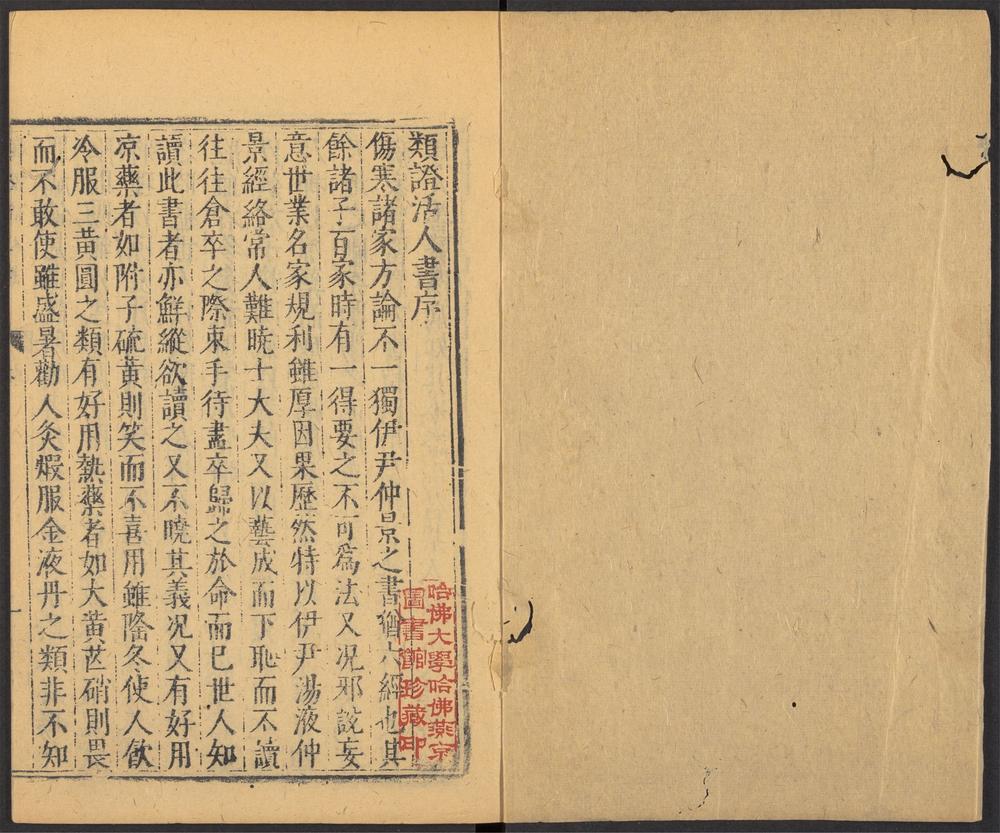 類證活人書序
傷寒諸家方論不一獨伊尹仲景之書猶六經也其
餘諸子百家時有一得要之不可為法又況邪說妄
意世業名家規利雖厚因果歷然特以伊尹湯液仲
景經絡常人難曉士大夫又以藝成而下恥而不讀
往往倉卒之際束手待盡卒歸之於命而已世人知
讀此書者亦鮮縱欲讀之又不曉其義況又有好用
凉藥者如附子硫黃則笑而不喜用雖隆冬使人飲
冷服三黃圓之類有好用熱藥者如大黃芒硝則畏
而不敢使雖盛暑勸人灸煆服金液丹之類非不知
哈佛大學哈佛燕京
圖書館珍藏印